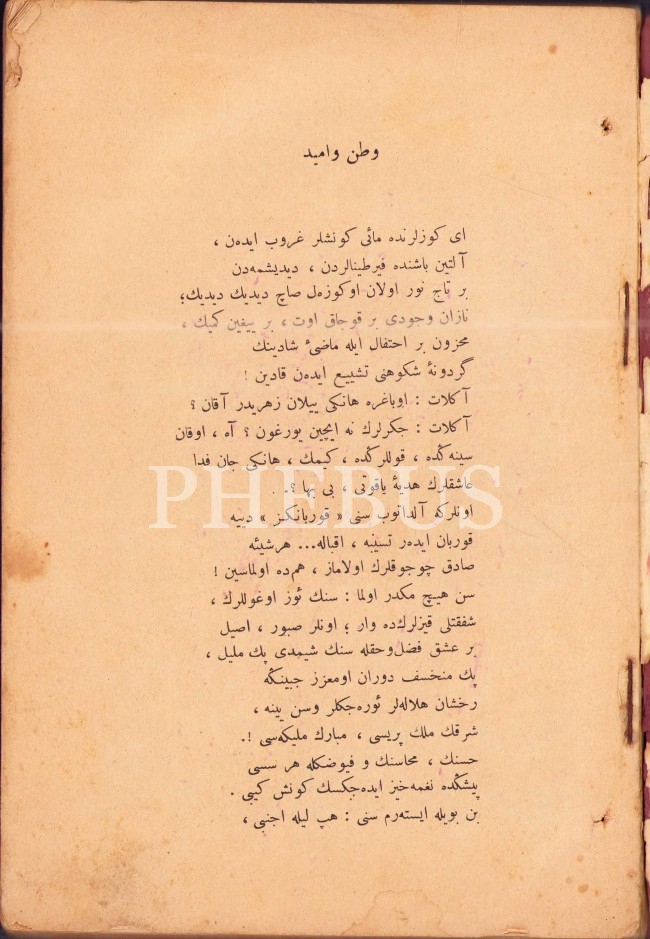 وطن واميد
ای كوزلرنده مائی كونشلر غروب ايده‌ن ،
آلتين باشنده فيرطينالردن ، ديديشمه‌دن
بر تاج نور اولان اوكوزه‌ل صاچ ديديك ديديك؛
نازان وجودی بر قوجاق اوت ، بر ييغين كميك ،
محزون بر احتفال ايله ماضئ شادينك
گردونهٔ شكوهنی تشييع ايده‌ن قادين !
آكلات : اوباغره هانكی ييلان زهريدر آقان ؟
آكلات : جكرلرك نه ايچين يورغون ؟ آه ، اوقان
سينه‌ڭده ، قوللرڭده ، كيمك ، هانكی جان فدا
عاشقلرك هديهٔ ياقوتی ، بی بها ؟..
PHEBUS
اونلركه آلداتوب سنی « قوربانكز » ديیه
قوربان ايده‌ر ، اقباله... هرشيئه
صادق چوجوقلرك اولاماز ، هم‌ده اولماسين !
سن هيچ مكدر اولما : سنك ئوز اوغوللرك ،
شفقتلی قيزلرك‌ده وار ؛ اونلر صبور ، اصيل
بر عشق فضل‌وحقله سنك شيمدی پك مليل ،
پك منخسف دوران اومعزز جبينڭه
رخشان هلاله‌لر ئوره‌جكلر وسن يينه ،
شرقك ملك پريسی ، مبارك مليكه‌سی !.
حسنك ، محاسنك و فيوضكله هر سسی
پيشڭده نغمه‌خيز ايده‌جكسك كونش كيبی .
بن بويله ايسته‌رم سنی : هپ ليله اجنبی ،